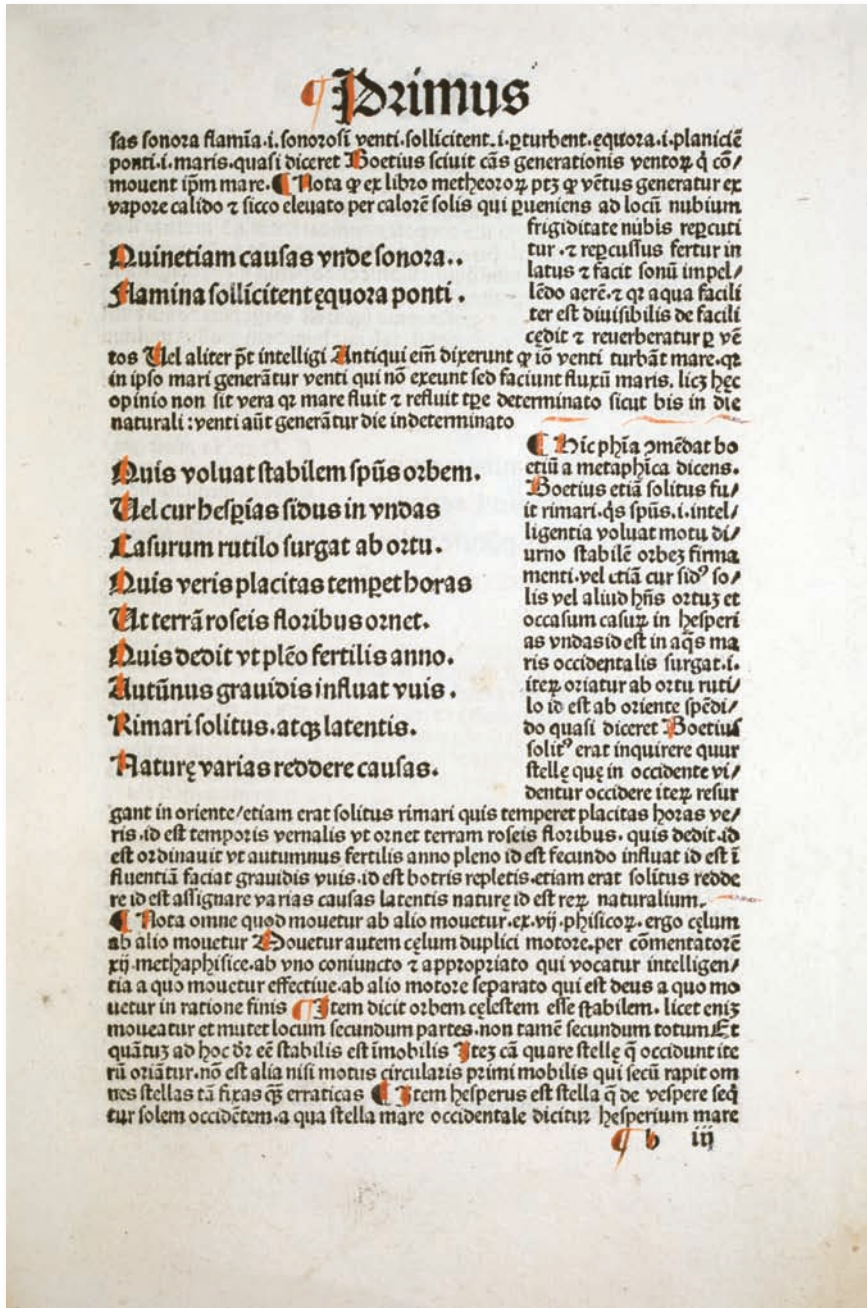 ¶ Primus
sas sonora flamīa.i.sonorosi venti.sollicitent.i.ꝑturbent.ęquora.i.planiciē
ponti.i.maris.quasi diceret Boetius sciuit cās generationis ventoꝝ q̄ cō/
mouent ip̄m mare.¶ Nota ꝙ ex libro metheoroꝝ ptꝫ ꝙ vētus generatur ex
vapore calido ⁊ sicco eleuato per calorē solis qui ꝑueniens ad locū nubium
frigiditate nubis reꝑcuti
tur.⁊ reꝑcussus fertur in
latus ⁊ facit sonū impel/
lēdo aerē.⁊ qꝛ aqua facili
ter est diuisibilis de facili
cędit ⁊ reuerberatur ꝑ vē
Quinetiam causas vnde sonora..
Flamina sollicitent ęquora ponti.
tos Uel aliter pt̄ intelligi Antiqui em̄ dixerunt ꝙ iō venti turbāt mare.qꝛ
in ipso mari generātur venti qui nō exeunt sed faciunt fluxū maris.licꝫ hęc
opinio non sit vera qꝛ mare fluit ⁊ refluit tꝑe determinato sicut bis in die
naturali:venti aūt generātur die indeterminato
Quis voluat stabilem spūs orbem.
Uel cur hesꝑias sidus in vndas
Casurum rutilo surgat ab ortu.
Quis veris placitas temꝑet horas
Ut terrā roseis floribus ornet.
Quis dedit vt plēo fertilis anno.
Autūnus grauidis influat vuis.
Rimari solitus.atqꝫ latentis.
Naturę varias reddere causas.
¶ Hic ph̄ia ꝯmēdat bo
etiū a metaph̄ica dicens.
Boetius etiā solitus fu/
it rimari.q̄s spūs.i.intel/
ligentia voluat motu di/
urno stabilē orbeꝫ firma
menti.vel etiā cur sidꝰ so/
lis vel aliud hn̄s ortuꝫ et
occasum casuꝝ in hesperi
as vndas id est in aq̄s ma
ris occidentalis surgat.i.
iteꝝ oriatur ab ortu ruti/
lo id est ab oriente spēdi/
do quasi diceret Boetius
solitꝰ erat inquirere quur
stellę quę in occidente vi/
dentur occidere iteꝝ resur
gant in oriente/etiam erat solitus rimari quis temperet placitas horas ve/
ris.id est temporis vernalis vt ornet terram roseis floribus.quis dedit.id
est ordinauit vt autumnus fertilis anno pleno id est fecundo influat id est ī
fluentiā faciat grauidis vuis.id est botris repletis.etiam erat solitus redde
re id est assignare varias causas latentis naturę id est reꝝ naturalium.
¶ Nota omne quod mouetur ab alio mouetur.ex.vij.phisicoꝝ.ergo cęlum
ab alio mouetur Mouetur autem cęlum duplici motore.per cōmentatorē
xij.methaphisice.ab vno coniuncto ⁊ appropriato qui vocatur intelligen/
tia a quo mouetur effectiue.ab alio motore separato qui est deus a quo mo
uetur in ratione finis ¶Item dicit orbem cęlestem esse stabilem.licet eniꝫ
moueatur et mutet locum secundum partes.non tamē secundum totum Et
quātuꝫ ad hoc dr̄ eē stabilis est īmobilis Iteꝫ cā quare stellę q̄ occidunt ite
rū oriātur.nō est alia nisi motus circularis primi mobilis qui secū rapit om
nes stellas tā fixas qꝫ̄ erraticas ¶ Item hesperus est stella q̄ de vespere seq̄
tur solem occidētem.a qua stella mare occidentale dicitur hesperium mare
¶ b iij